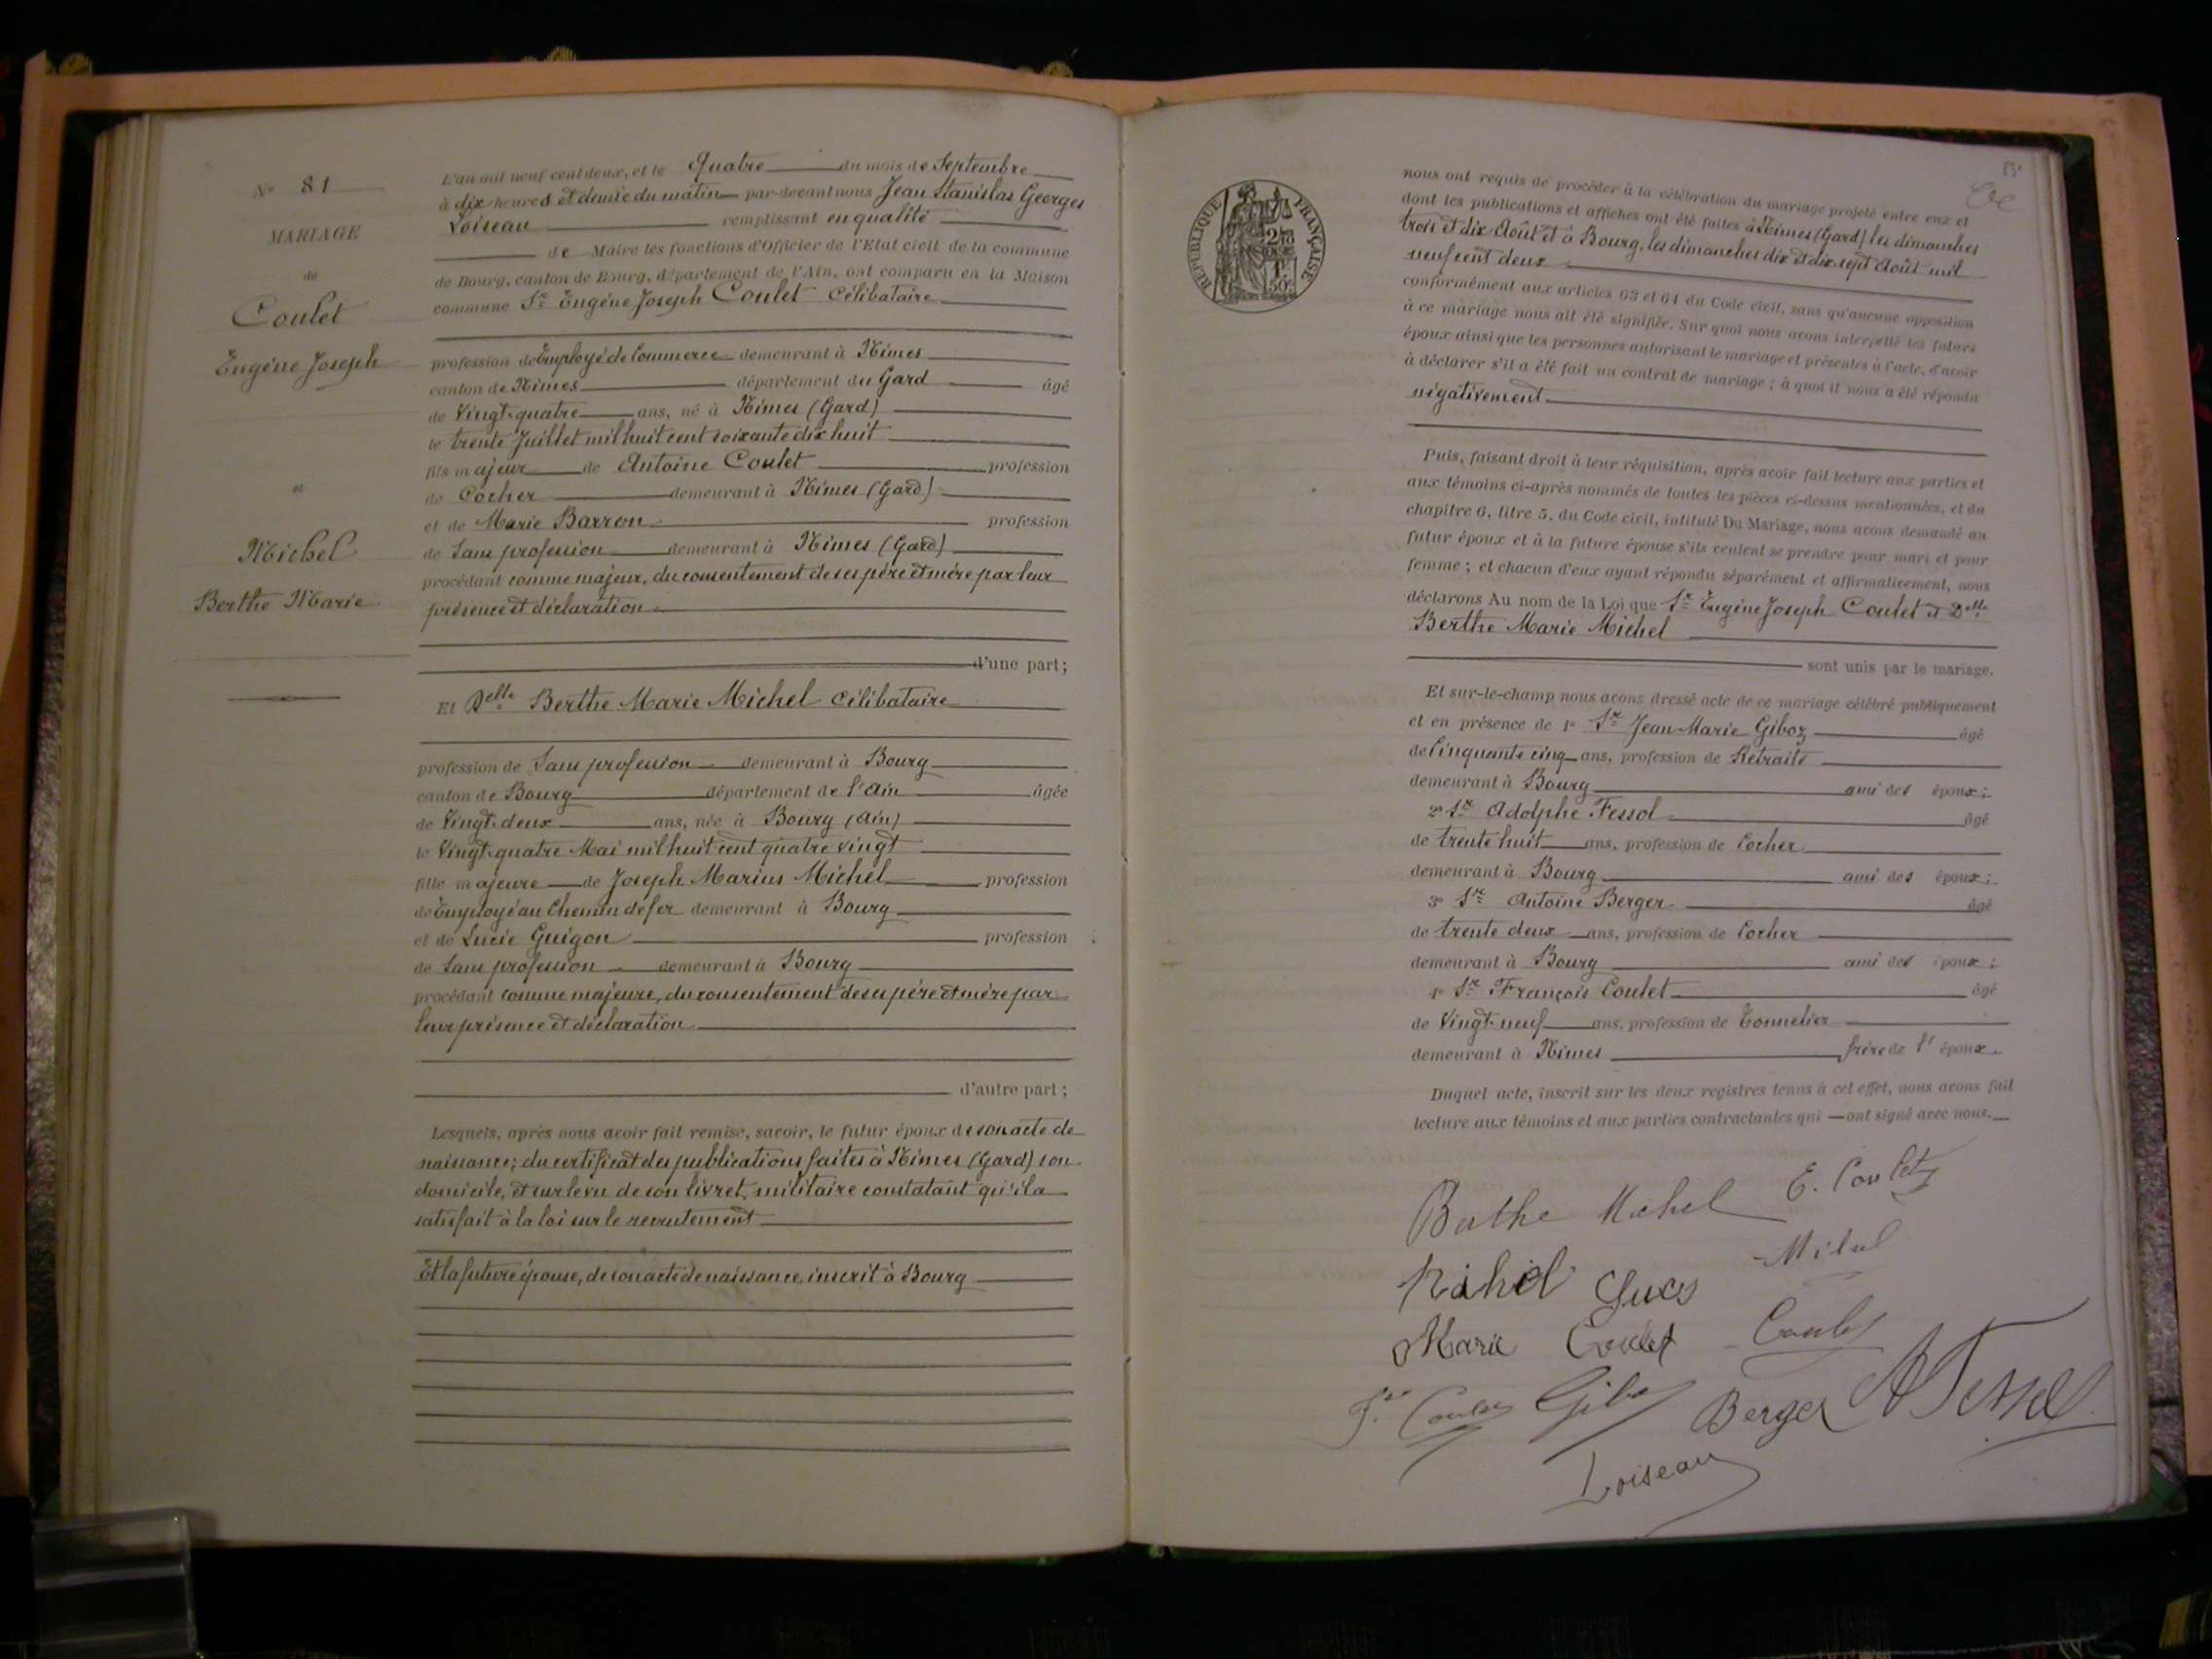 N° 81
MARIAGE
de
Coulet
Eugène Joseph
et
Michel
Berthe Marie
L'an mil neuf cent deux, et le Quatre du mois de Septembre
à dix heures et demie du matin par-devant nous Jean Stanislas Georges
Loiseau remplissant en qualité
de Maire les fonctions d'Officier de l'Etat civil de la commune
de Bourg, canton de Bourg, département de l'Ain, ont comparu en la Maison
commune Sr Eugène Joseph Coulet Célibataire
profession de Employé de Commerce demeurant à Nîmes
canton de Nîmes département du Gard âgé
de Vingt-quatre ans, né à Nîmes (Gard)
le trente Juillet mil huit cent soixante dix huit
fils majeur de Antoine Coulet profession
de Cocher demeurant à Nîmes (Gard)
et de Marie Barron profession
de Sans profession demeurant à Nîmes (Gard)
procédant comme majeur, du consentement de ses père et mère par leur
présence et déclaration
d'une part;
Et Delle Berthe Marie Michel Célibataire
profession de Sans profession demeurant à Bourg
canton de Bourg département de l'Ain âgée
de Vingt-deux ans, née à Bourg (Ain)
le Vingt-quatre Mai mil huit cent quatre vingt
fille majeure de Joseph Marius Michel profession
de Employé au Chemin de fer demeurant à Bourg
et de Lucie Guigon profession
de Sans profession demeurant à Bourg
procédant comme majeure, du consentement de ses père et mère par
leur présence et déclaration
d'autre part;
Lesquels, après nous avoir fait remise, savoir, le futur époux de son acte de
naissance; du certificat des publications faites à Nîmes (Gard) son
domicile, et sur le vu de son livret militaire constatant qu'il a
satisfait à la loi sur le recrutement
Et la future épouse, de son acte de naissance, inscrit à Bourg
REPUBLIQUE FRANÇAISE
nous ont requis de procéder à la célébration du mariage projeté entre eux et
dont les publications et affiches ont été faites à Nîmes (Gard) les dimanches
trois et dix Août et à Bourg, les dimanches dix et dix sept Août mil
neuf cent deux
conformément aux articles 63 et 64 du Code civil, sans qu'aucune opposition
à ce mariage nous ait été signifiée. Sur quoi nous avons interpellé les futurs
époux ainsi que les personnes autorisant le mariage et présentes à l'acte, d'avoir
à déclarer s'il a été fait un contrat de mariage; à quoi il nous a été répondu
négativement
Puis, faisant droit à leur réquisition, après avoir fait lecture aux parties et
aux témoins ci-après nommés de toutes les pièces ci-dessus mentionnées, et du
chapitre 6, titre 5, du Code civil, intitulé Du Mariage, nous avons demandé au
futur époux et à la future épouse s'ils veulent se prendre pour mari et pour
femme; et chacun d'eux ayant répondu séparément et affirmativement, nous
déclarons Au nom de la Loi que Sr Eugène Joseph Coulet et Delle
Berthe Marie Michel
sont unis par le mariage.
Et sur-le-champ nous avons dressé acte de ce mariage célébré publiquement
et en présence de 1° Sr Jean Marie Giboz âgé
de Cinquante cinq ans, profession de Retraité
demeurant à Bourg ami des époux;
2° Sr Adolphe Fessol âgé
de trente huit ans, profession de Cocher
demeurant à Bourg ami des époux;
3° Sr Antoine Berger âgé
de trente deux ans, profession de Cocher
demeurant à Bourg ami des époux;
4° Sr François Coulet âgé
de Vingt-neuf ans, profession de Tonnelier
demeurant à Nîmes frère de l'époux.
Duquel acte, inscrit sur les deux registres tenus à cet effet, nous avons fait
lecture aux témoins et aux parties contractantes qui ont signé avec nous.
Berthe Michel E. Coulet
Michel
Marie Coulet Coulet
Coulet Giboz Berger A Fessol
Loiseau